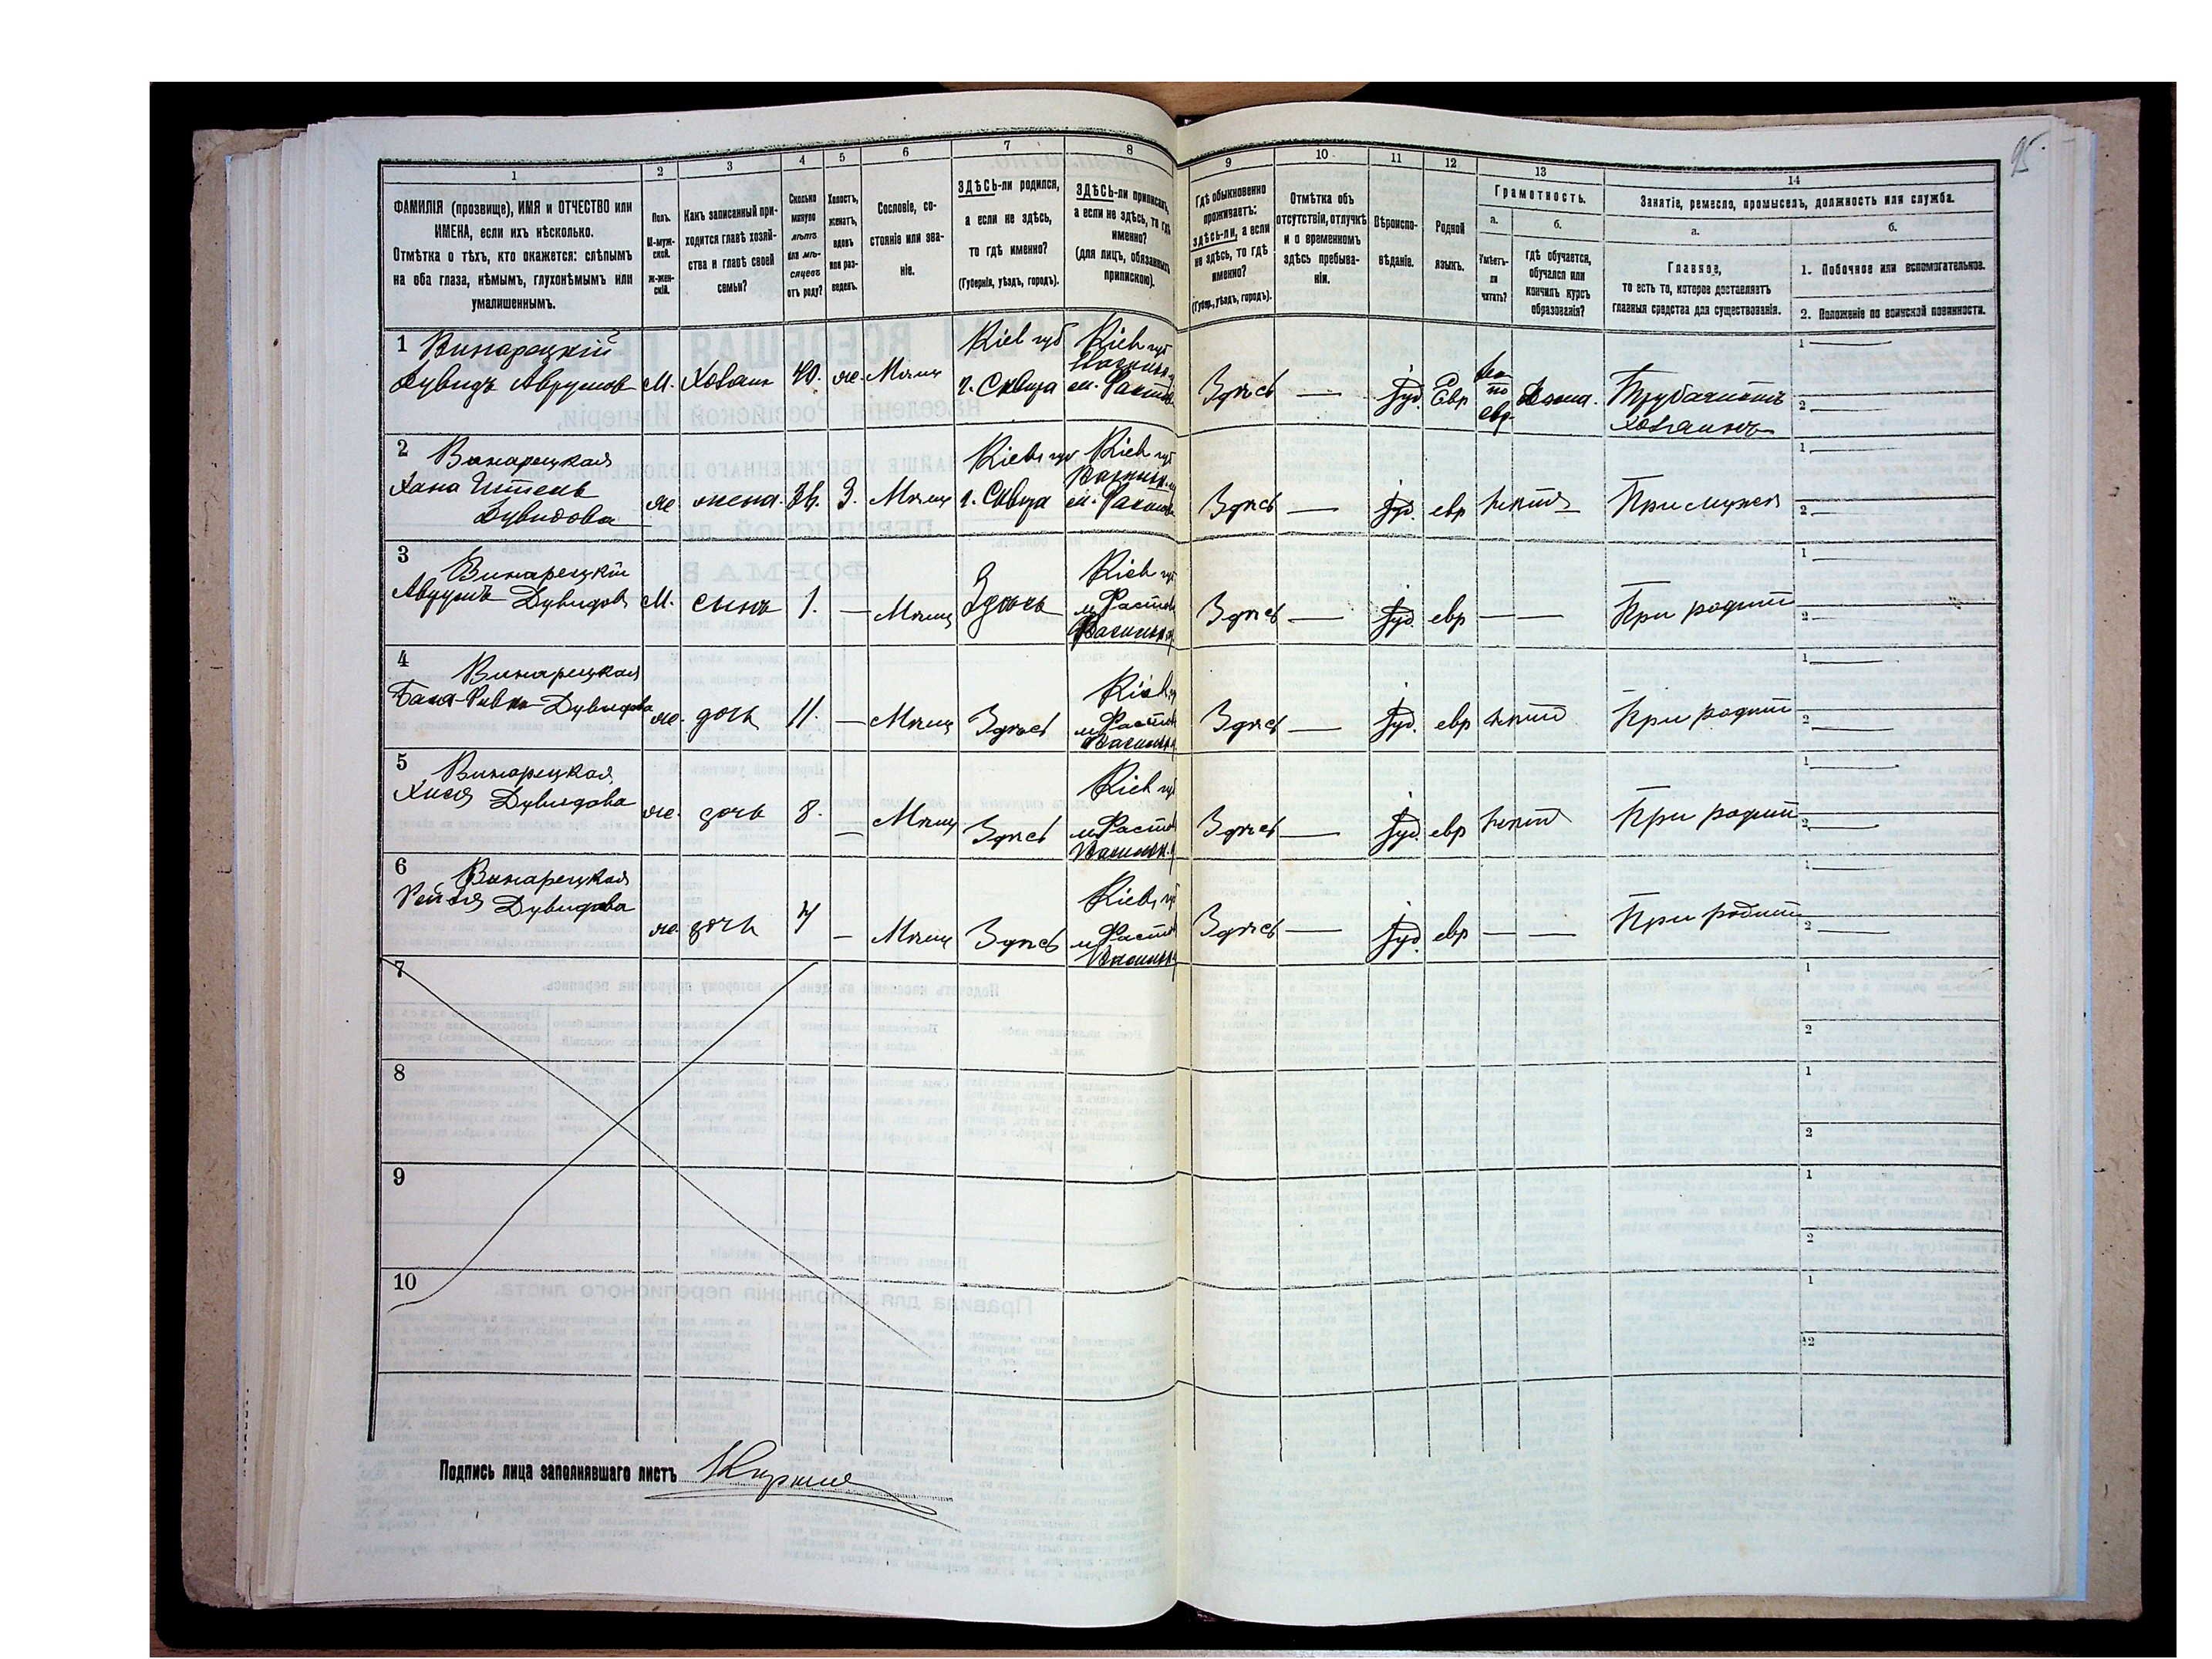 95.
1
2
3
4
5
6
7
8
9
10
11
12
13
14
ФАМИЛІЯ (прозвище), ИМЯ и ОТЧЕСТВО или
ИМЕНА, если ихъ нѣсколько.
Отмѣтка о тѣхъ, кто окажется: слѣпымъ
на оба глаза, нѣмымъ, глухонѣмымъ или
умалишеннымъ.
Полъ.
М-муж-
ской.
Ж-жен-
скій.
Какъ записанный при-
ходится главѣ хозяй-
ства и главѣ своей
семьи?
Сколько
минуло
лѣтъ
или мѣ-
сяцевъ
отъ роду?
Холостъ,
женатъ,
вдовъ
или раз-
веденъ.
Сословіе, со-
стояніе или зва-
ніе.
ЗДѢСЬ-ли родился,
а если не здѣсь,
то гдѣ именно?
(Губернія, уѣздъ, городъ).
ЗДѢСЬ-ли приписанъ,
а если не здѣсь, то гдѣ
именно?
(для лицъ, обязанныхъ
припискою).
Гдѣ обыкновенно
проживаетъ:
здѣсь-ли, а если
не здѣсь, то гдѣ
именно?
(Губер., уѣздъ, городъ).
Отмѣтка объ
отсутствіи, отлучкѣ
и о временномъ
здѣсь пребыва-
ніи.
Вѣроиспо-
вѣданіе.
Родной
языкъ.
Грамотность.
а.
Умѣетъ-
ли
читать?
б.
Гдѣ обучается,
обучался или
кончилъ курсъ
образованія?
Занятіе, ремесло, промыселъ, должность или служба.
а.
Главное,
то есть то, которое доставляетъ
главныя средства для существованія.
б.
1. Побочное или вспомогательное.
2. Положеніе по воинской повинности.
1 Винарецкій
Дувидъ Аврумовъ
М.
Хозяинъ
40.
ж.
Мѣщ
Кіев губ
г. Сквира
Кіев губ
Васильк.
м. Фастов
Здѣсь
—
Іуд.
Евр
да
по
евр.
Дома.
хозяинъ
1
2
2 Винарецкая
Хана
Дувидова
ж
жена.
З.
Мѣщ
Кіев губ
г. Сквира
Кіев губ
Васильк.
м. Фастов
Здѣсь
—
Іуд.
евр
нѣтъ
При мужѣ
1
2
3 Винарецкій
Аврумъ Дувидов
М.
сынъ
1.
—
Мѣщ
Здѣсь
Кіев губ
м Фастов
Васильк.
Здѣсь
—
Іуд.
евр
—
—
При родит
1
2
4 Винарецкая
Бася-Ривка Дувидова
ж.
дочь
11.
—
Мѣщ
Здѣсь
Кіев гу
м Фастов
Васильк
Здѣсь
—
Іуд.
евр
нѣтъ
При родит
1
2
5 Винарецкая
Хися Дувидова
ж.
дочь
8.
—
Мѣщ
Здѣсь
Кіев губ
м Фастов
Васильк.
Здѣсь
—
Іуд.
евр
нѣтъ
При родит
1
2
6 Винарецкая
Дувидова
ж.
дочь
4
—
Мѣщ
Здѣсь
Кіев губ
м Фастов
Васильк
Здѣсь
—
Іуд.
евр
—
—
При родит
1
2
7
1
2
8
1
2
9
1
2
10
1
2
Подпись лица заполнявшаго листъ